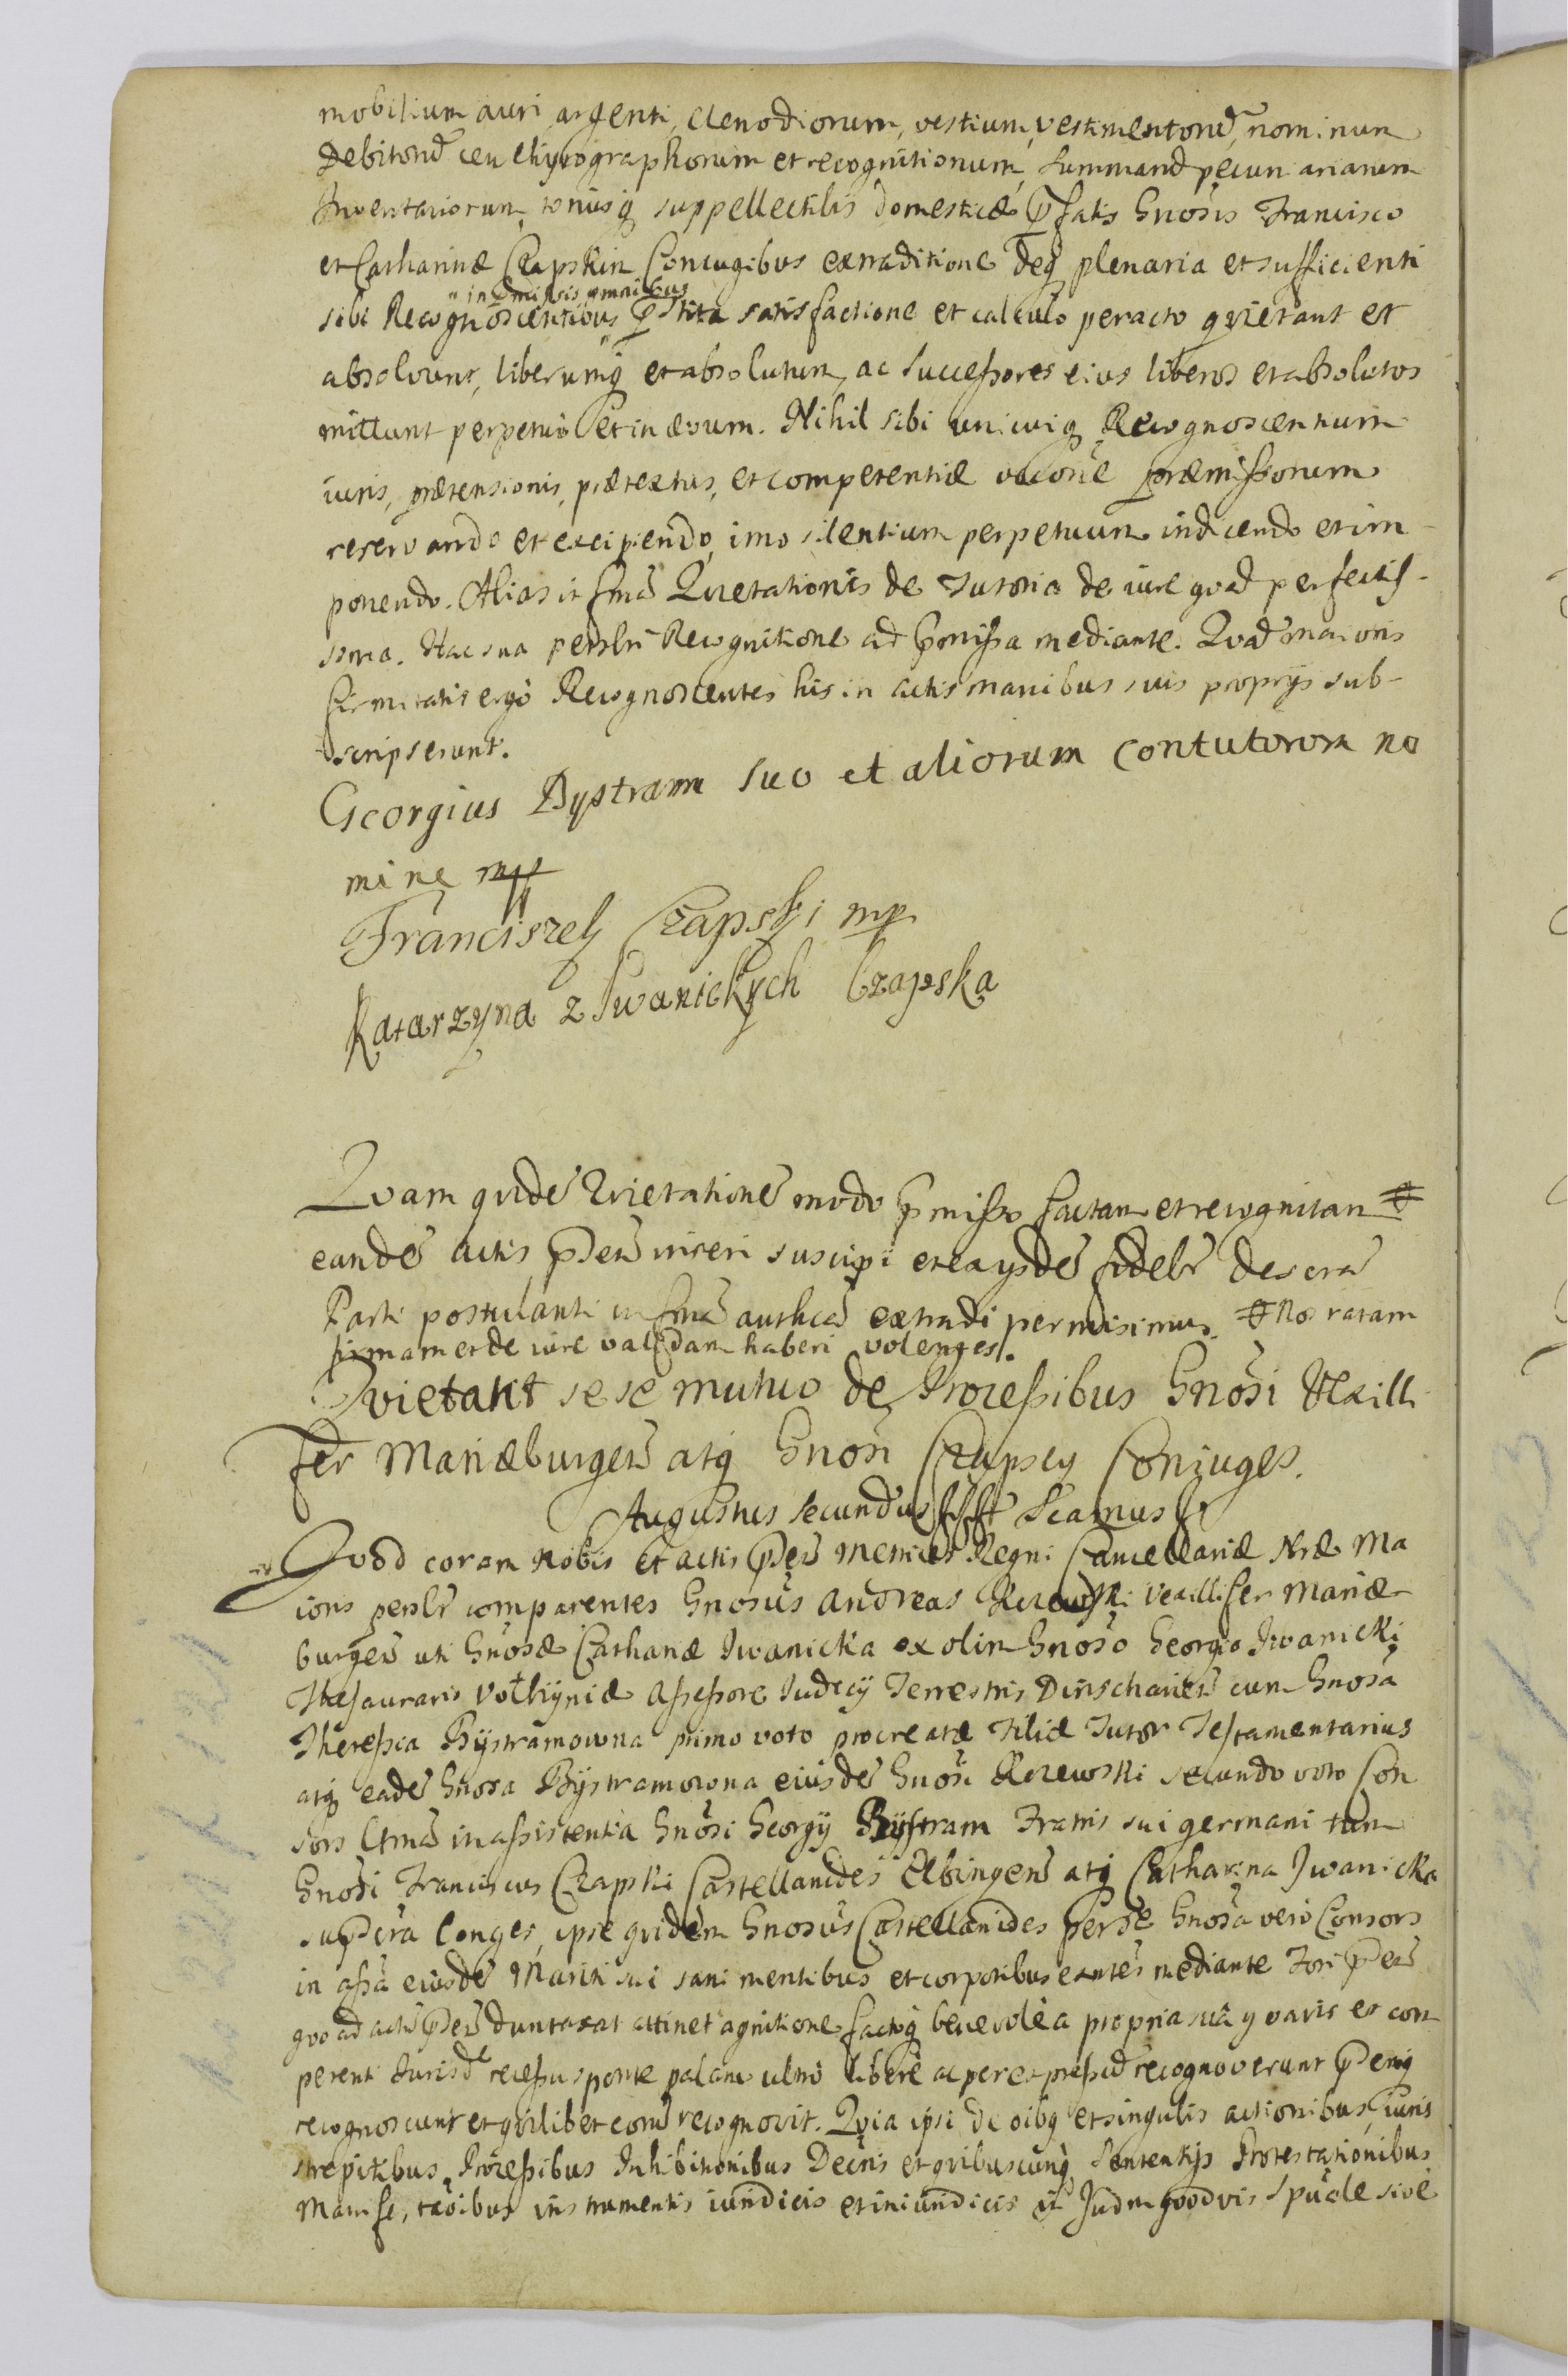 mobilium auri argenti, clenodiorum, vestium, vestimentorũ, nominum
Debitorũ ceu chyrographorum et recognitionum, summarũ pecuniariarum
Inventariorum, totiusq suppellectilis domesticæ pfatis Gnosis Francisco
et Catharinæ Czapskin Coniugibus extraditione deq plenaria et sufficienti
" in pmissis omnibus
sibi Recognoscentibus " pstita satisfactione et calculo peracto quietant et
absolvunt, liberumq et absolutum, ac successores eius liberos et absolutos
mittunt perpetuo et in ævum. Nihil sibi unicuiq Recognoscentium
iuris, prætensionis, prætextus, et competentiæ raõne præmissorum
reservando et excipiendo, imo silentium perpetuum indicendo et im-
ponendo. Alias in fmã Quietationis de Tutoria de iure quad perfectis-
sima. Hac sua persli Recognitione ad pmissa mediante. Quad maioris
firmitatis ergo Recognoscentes his in actis manibus suis proprys sub-
scripserunt.
Georgius Bystram suo et aliorum contutorom no
mine mp
Franciszek Czapski mp
Katarzyna z Iwanickych Czapska
Quam quidẽ Quietationẽ modo pmisso factam et recognitam #
eandẽ actis pntibũ inseri suscipi et ex ysdẽ fidelr descrã
Parti postulanti in fmã authcã extradi permisimus. # Nos ratam
firmam et de iure validam haberi volentes.
Quietant sese mutuo de Processibus Gnosi Vexilli
fer Mariæburgeñ atq Gnosi Czapscy Coniuges.
Augustus Secundus Sigtt Scamus
Quod coram Nobis et actis pntibũ Metrices Regni Cancellariæ Nræ Ma
ioris perslr comparentes Gnosus Andreas Rczewski Vexillifer Mariæ
burgeñ uti Gnosæ Catharæ Iwanickia ex olim Gnoso Georgio Iwanicki
Thesauraris Vołhyniæ Assessore Iudicij Terrestris Dirschavieñ cum Gnosa
Theressia Bystramowna primo voto procreatæ Filiæ Tutor Testamentarius
atq eadẽ Gnosa Bystramowna eiusdẽ Gnosi Rczewski secundo voto Con
sors ltmã in assistentia Gnosi Georgij Bystram Fratris sui germani tum
Gnosi Franciscus Czapski Castellanides Elbingeñ atq Catharina Iwanicka
supscra Conges, ipse quidem Gnosus Castellanides per se Gnosa vero Consors
in assa eiusdẽ Mariti sui sani mentibus et corporibus extẽs mediante Fori pntis
quo ad actũ pntem duntaxat attinet agnitione factoq benevole a propria sua y oaris et com
petenti Iurisdẽ recessu sponte palam ultro libere ac per expressũ recognoverunt pntibq
recognoscunt et quilibet eorũ recognovit. Quia ipsi de oibq et singulis actionibus, iuris
strepitibus, Processibus Inhibitionibus Decris et quibuscunq Sententys Protestationibus
Manifestaõibus instrumentis iuridicis et iniuridicis in Iudm quodvis Spuale sive